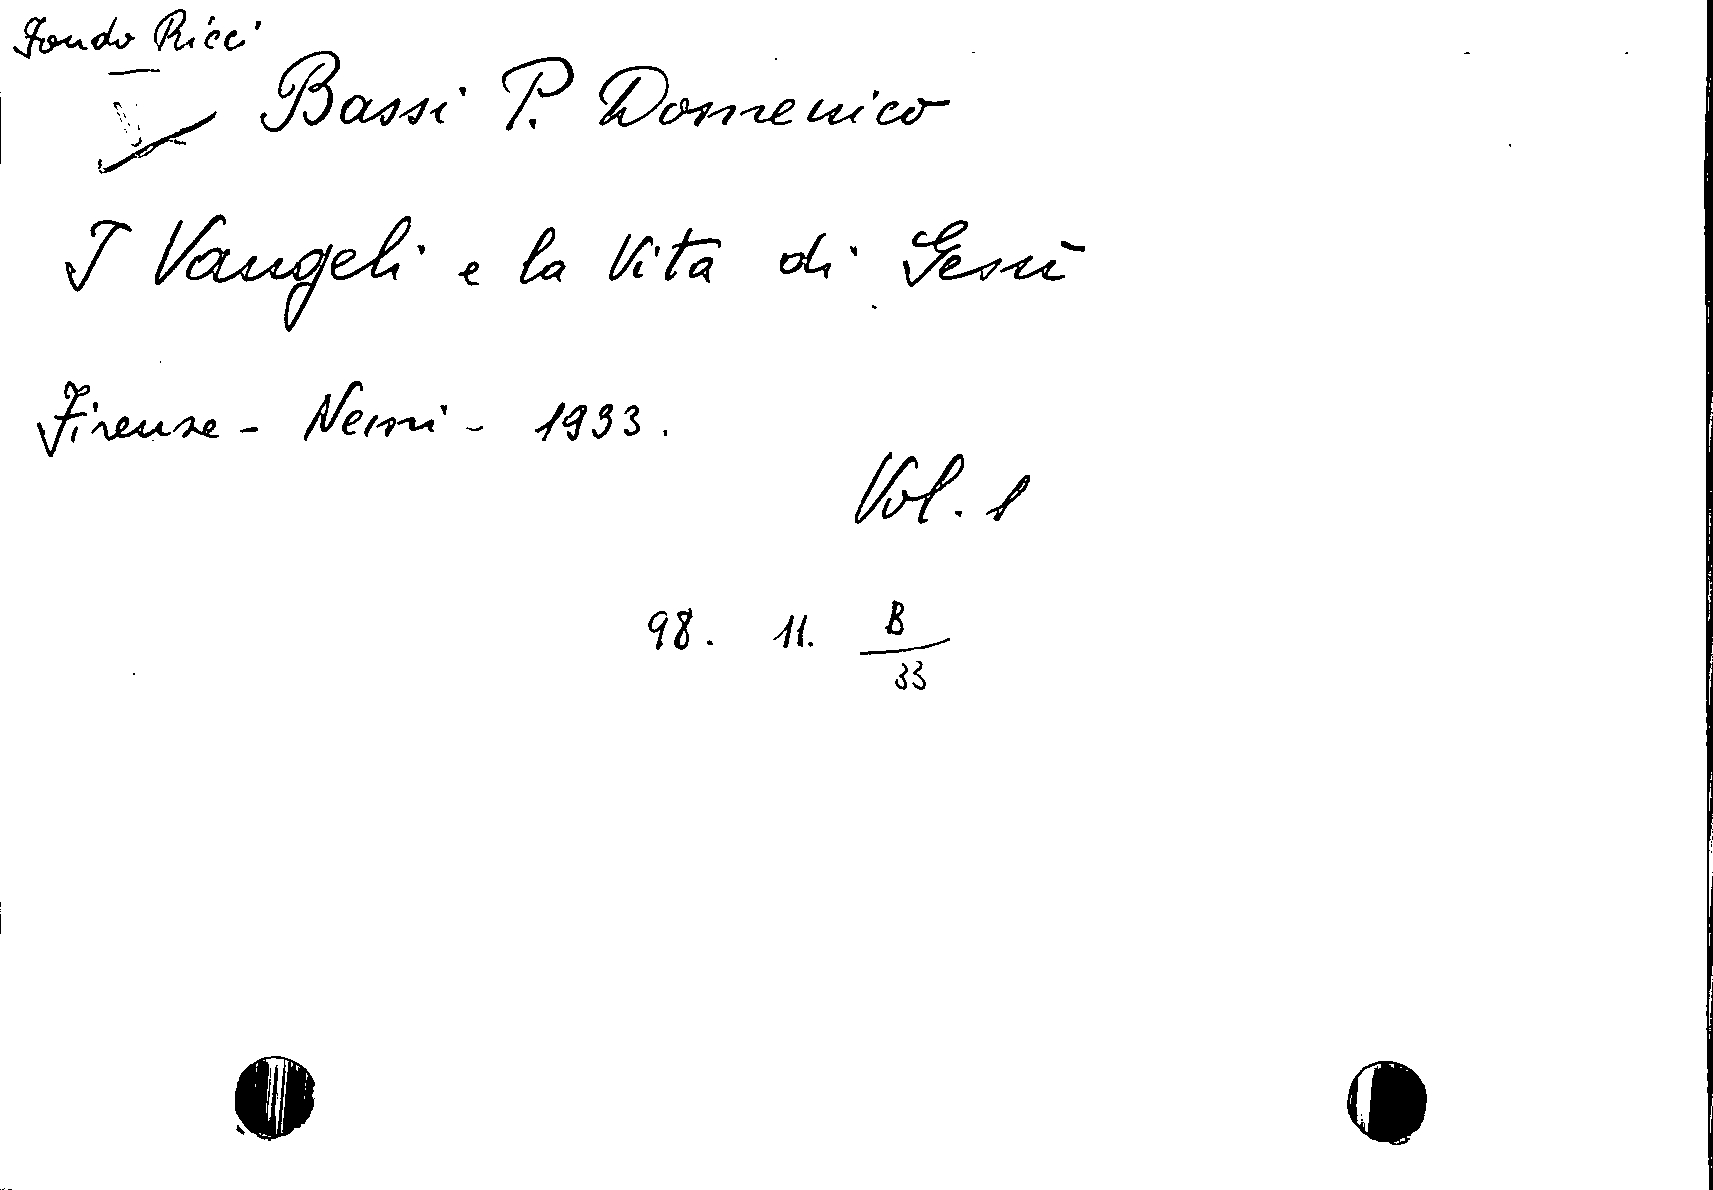 Fondo Ricci
Bassi P. Domenico
I Vangeli e la Vita di Gesù
Firenze - Nemi - 1933.
Vol. 1
98. 11. B
33